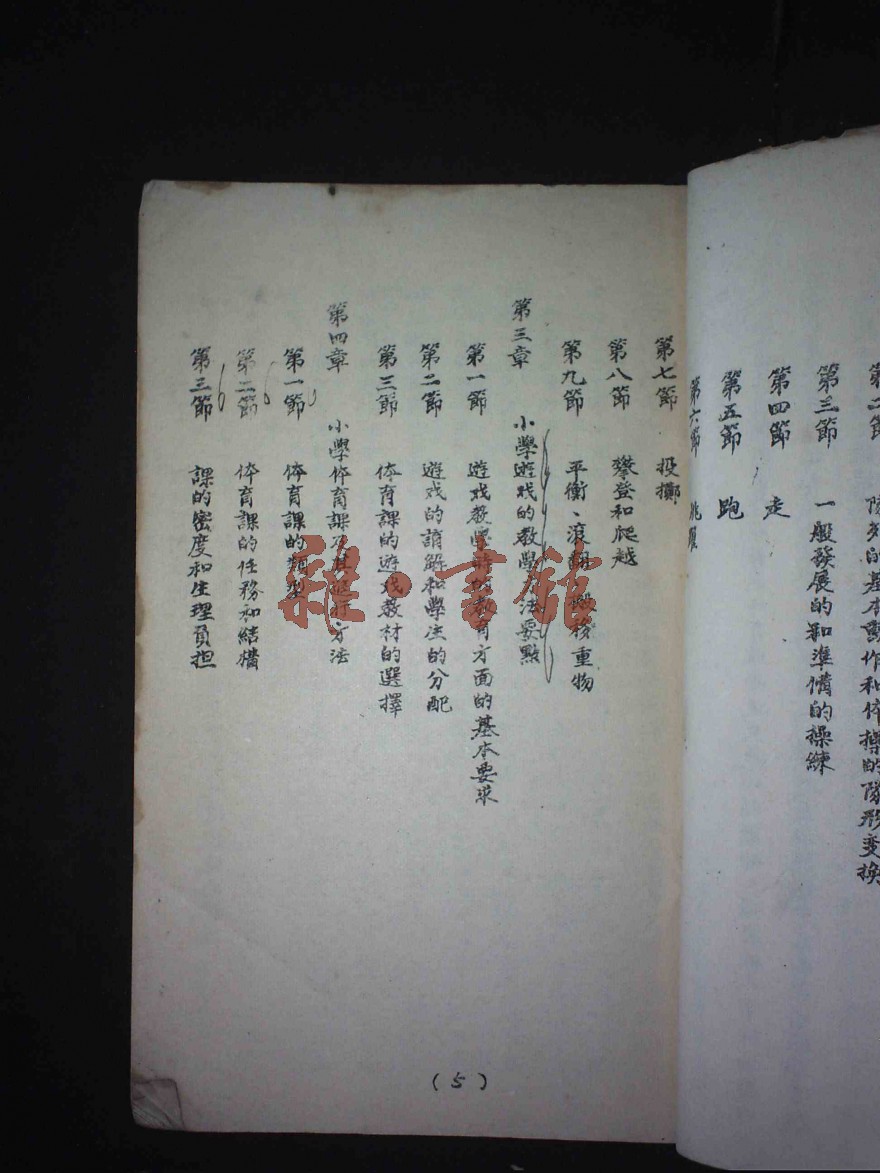 隊列的基本動作和体操的隊形变换
第三節 一般發展的和準備的操練
第四節 走
第五節 跑
第六節 跳躍
第七節 投擲
第八節 攀登和爬越
第九節 平衡、滾翻 搬移重物
第三章 小學遊戏的教學方法要點
第一節 遊戏教學時 教育方面的基本要求
第二節 遊戏的講解和學生的分配
第三節 体育課的遊戏教材的選擇
第四章 小學体育課及其進行方法
第一節 体育課的類型
第二節 体育課的任務和結構
第三節 課的密度和生理負担
(5)
雜·書館